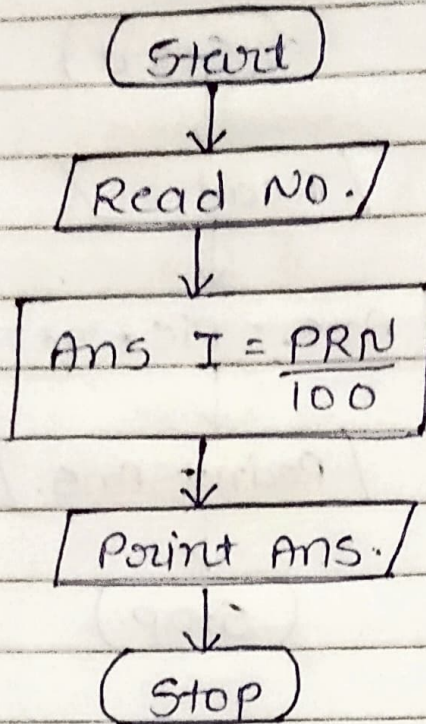 Start
Read No.
Ans I = PRN
100
Print Ans.
Stop